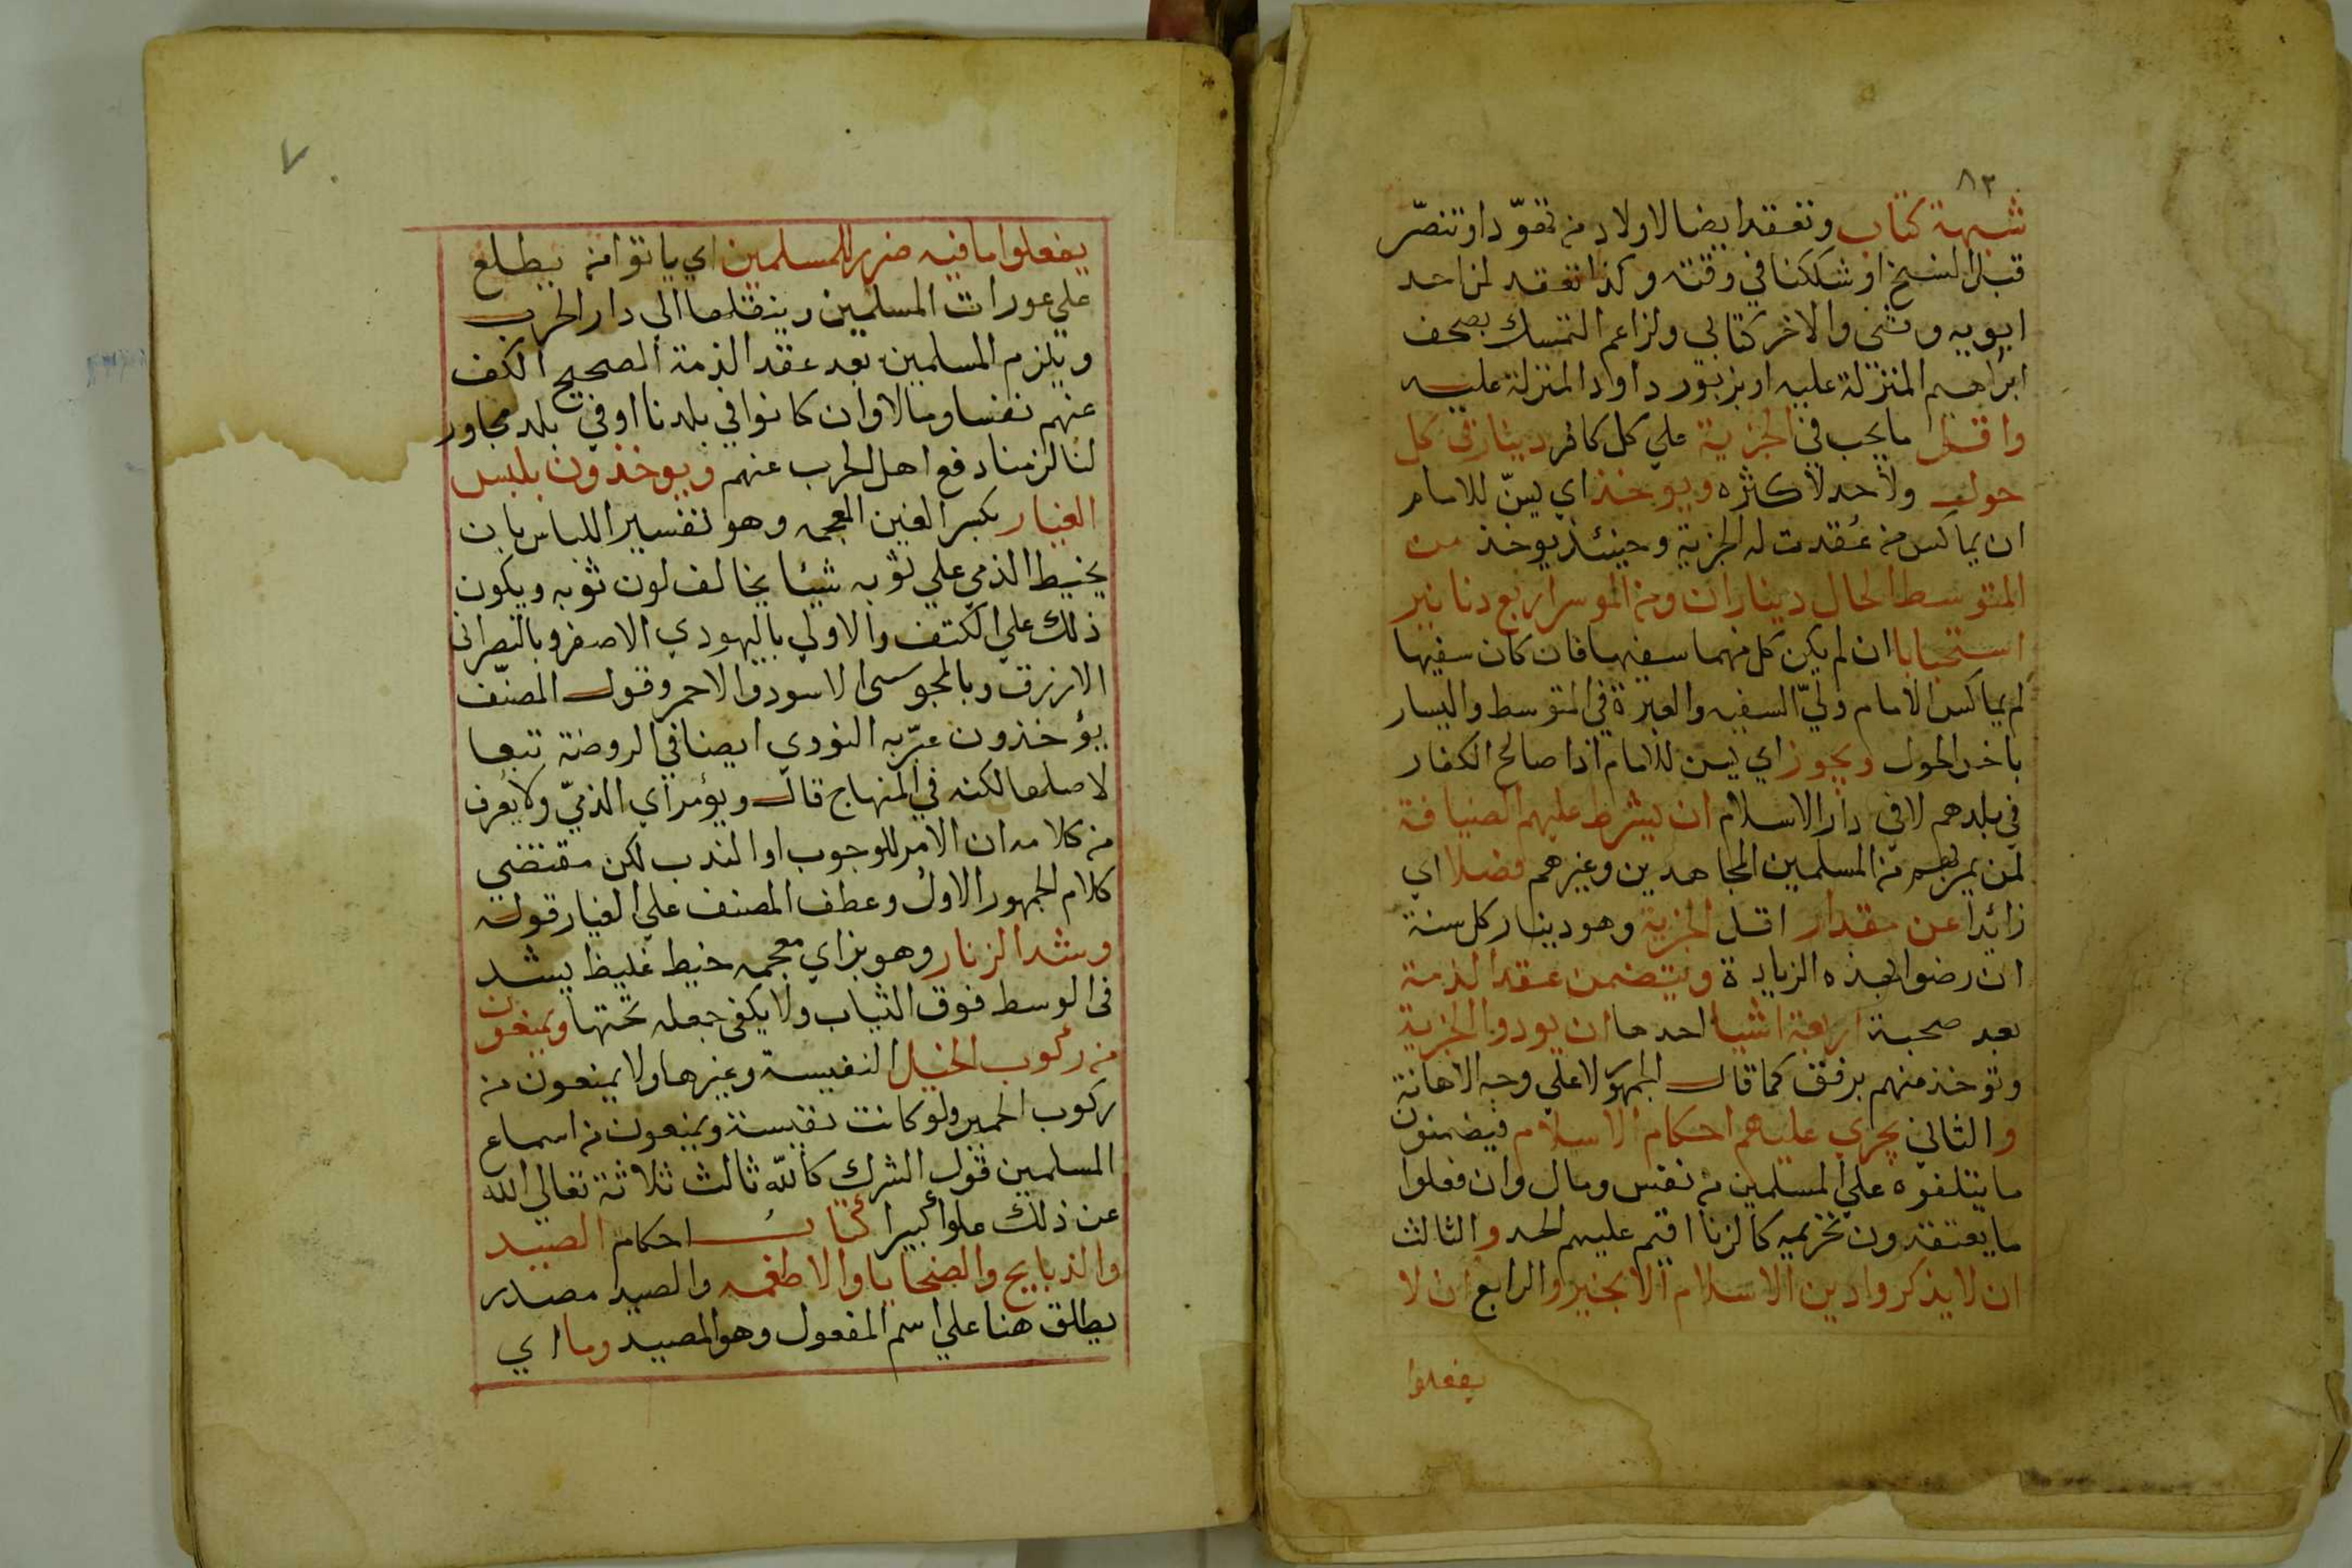 ٨٣
شبهة كتاب وتعقد ايضا لاولاد من تهوّد او تنصّر
قبل النسخ او شككنا في وقته وكذا تعقد لمن احد
ابويه وثني والاخر كتابي ولزاعم التمسك بصحف
ابراهيم المنزلة عليه او بزبور داود المنزلة عليه
واقل ما يجب في الجزية علي كل كافر دينار في كل
حول ولا حد لاكثره ويوخذ اي يسنّ للامام
ان يماكس من عُقدت له الجزية وحينئذ يوخذ من
المتوسط الحال ديناران ومن الموسر اربع دنانير
استحبابا ان لم يكن كل منهما سفيها فان كان سفيها
لم يماكس الامام وليّ السفيه والعبرة في المتوسط واليسار
باخر الحول ويجوز اي يسن للامام اذا صالح الكفار
في بلدهم لا في دار الاسلام ان يشرط عليهم الضيافة
لمن يمر بهم من المسلمين المجاهدين وغيرهم فضلا اي
زائدا عن مقدار اقل الجزية وهو دينار كل سنة
ان رضوا بهذه الزيادة ويتضمن عقد الذمة
بعد صحبة اربعة اشيا احدها ان يودوا الجزية
وتوخذ منهم برفق كما قال الجمهور لا علي وجه الاهانة
والثاني يجري عليهم احكام الاسلام فيضمنون
ما يتلفوه علي المسلمين من نفس ومال وان فعلوا
ما يعتقدون تحريمه كالزنا اقيم عليهم الحد والثالث
ان لا يذكروا دين الاسلام الا بخير والرابع ان لا
يفعلوا
٧
يفعلوا ما فيه ضرر للمسلمين اي ياتوا من يطلع
علي عورات المسلمين وينقلها الي دار الحرب
ويلزم المسلمين بعد عقد الذمة الصحيح الكف
عنهم نفسا ومالا وان كانوا في بلدنا او في بلد مجاور
لنا لزمنا دفع اهل الحرب عنهم ويوخذون بلبس
الغيار بكسر الغين المعجمه وهو تفسير اللباس بان
يخيط الذمي علي ثوبه شيئا يخالف لون ثوبه ويكون
ذلك علي الكتف والاولي باليهودي الاصفر وبالنصراني
الازرق وبالمجوسي الاسود والاحمر وقول المصنّف
يؤخذون عبّر به النووي ايضا في الروضة تبعا
لاصلها لكنه في المنهاج قال ويؤمر اي الذميّ ولا يعرف
من كلامه ان الامر للوجوب او الندب لكن مقتضي
كلام الجمهور الاول وعطف المصنف علي الغيار قوله
وشد الزنار وهو بزاي معجمه خيط غليظ يشد
في الوسط فوق الثياب ولا يكفي جعله تحتها ويمنعون
من ركوب الخيل النفيسة وغيرها ولا يمنعون من
ركوب الحمير ولو كانت نفيسة ويمنعون من اسماع
المسلمين قول الشرك كالله ثالث ثلاثة تعالي الله
عن ذلك علوا كبيرا كتاب احكام الصيد
والذبايح والضحايا والاطعمه والصيد مصدر
يطلق هنا علي اسم المفعول وهو المصيد وما اي